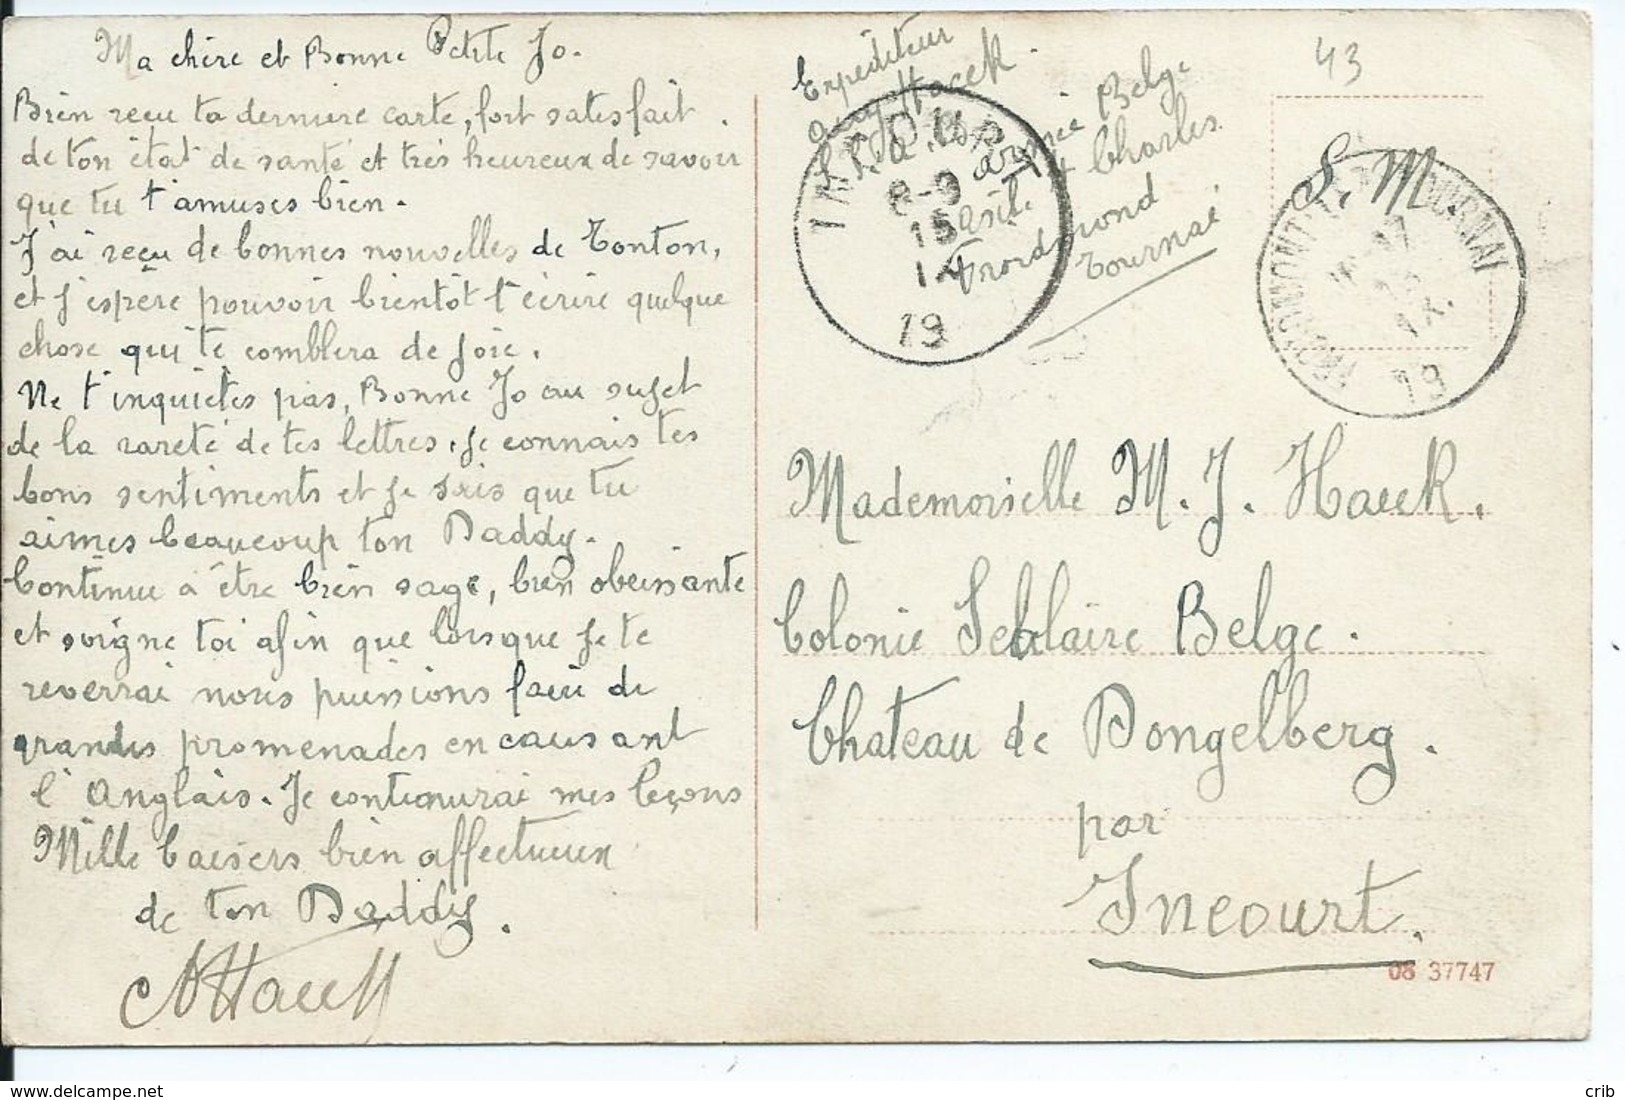 Ma chère et Bonne Petite Jo.
Bien reçu ta dernière carte, fort satisfait
de ton état de santé et très heureux de savoir
que tu t'amuses bien.
J'ai reçu de bonnes nouvelles de Tonton,
et j'espère pouvoir bientôt t'écrire quelque
chose qui te comblera de joie.
Ne t'inquiètes pas, Bonne Jo au sujet
de la rareté de tes lettres. Je connais tes
bons sentiments et je sais que tu
aimes beaucoup ton Daddy.
Continue à être bien sage, bien obeissante
et soigne toi afin que lorsque je te
reverrai nous puissions faire de
grandes promenades en causant
l'Anglais. Je continurai mes leçons
Mille baisers bien affectueux
de ton Daddy.
Haeck
Expéditeur
Haeck.
Armée Belge
Asile St Charles.
Froidmond
Tournai
43
S. M.
INCOURT
8-9
15
IX
19
FROIDMONT TOURNAI
IX
19
Mademoiselle M. J. Haeck.
Colonie Scolaire Belge.
Chateau de Dongelberg.
par
Incourt.
08 37747
crib